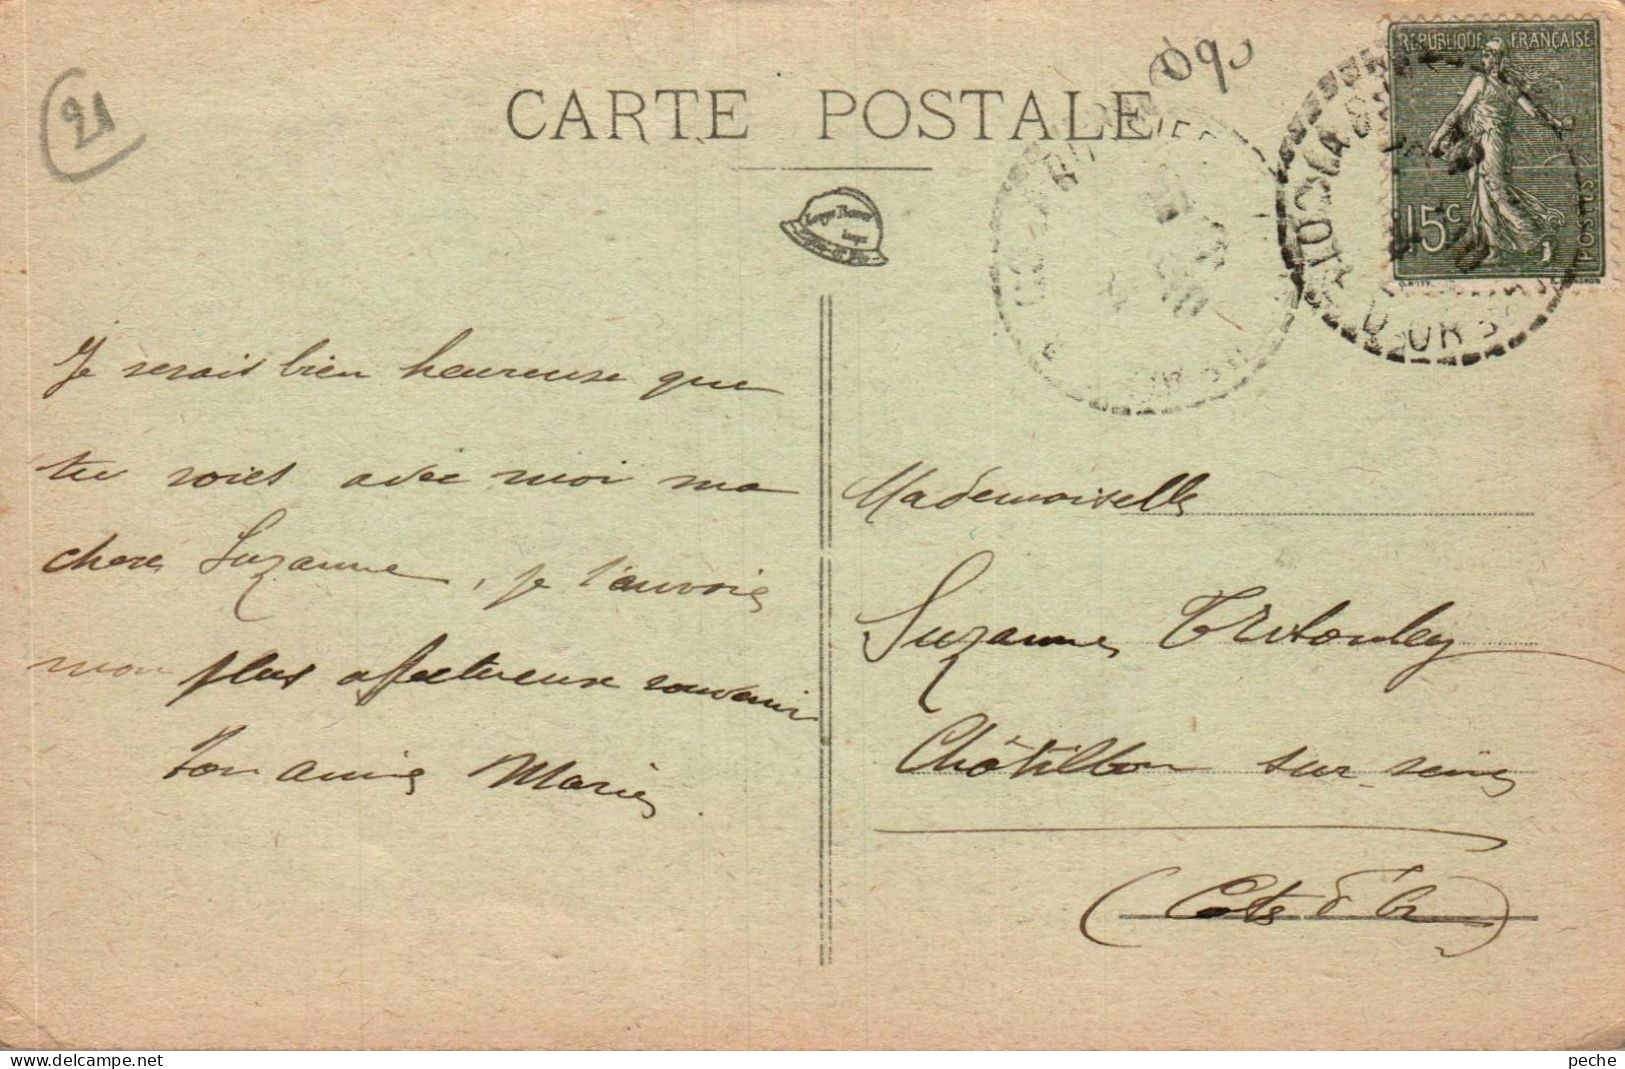 21
090
CARTE POSTALE
REPUBLIQUE FRANÇAISE
15c
POSTES
Je serais bien heureuse que
tu sois avec moi ma
chere Suzanne, je t'envoie
mon plus affectueux souvenir
Ton amie Marie.
Mademoiselle
Suzanne
Châtillon sur seine
(Cote d'Or)
© delcampe.net
peche